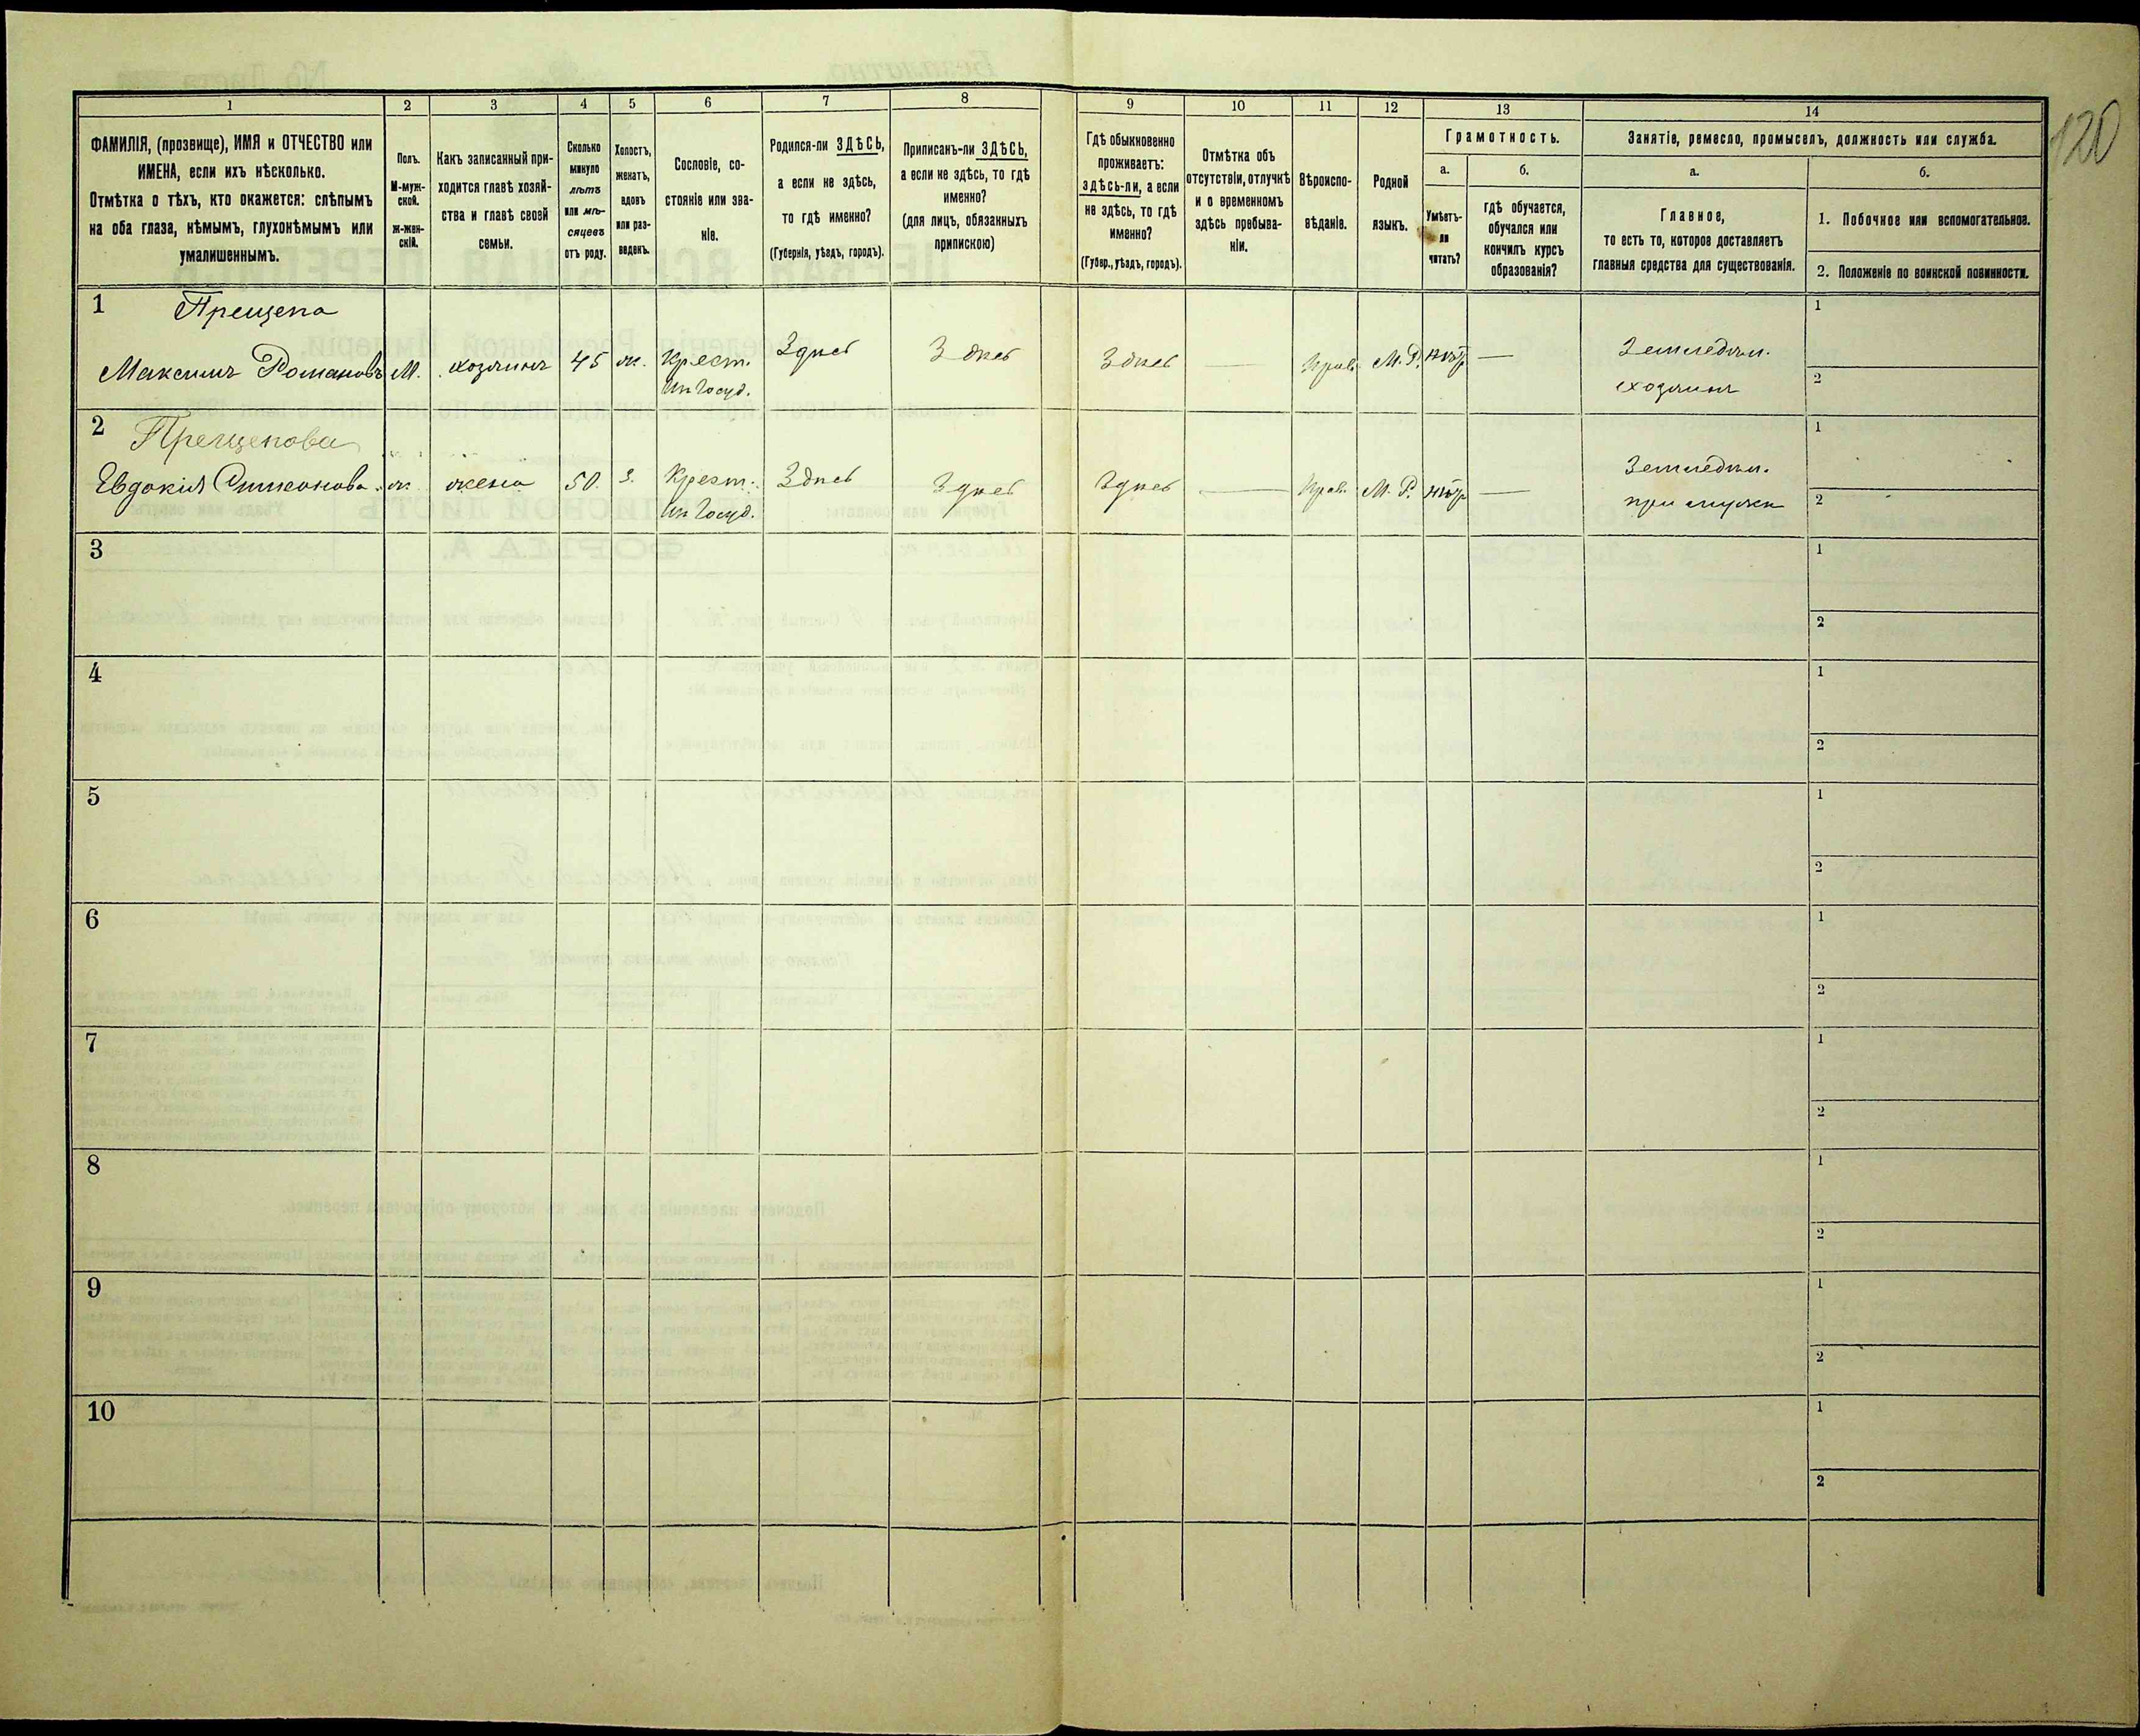 120
1 2 3 4 5 6 7 8 9 10 11 12 13 14
ФАМИЛІЯ, (прозвище), ИМЯ и ОТЧЕСТВО или
ИМЕНА, если ихъ нѣсколько.
Отмѣтка о тѣхъ, кто окажется: слѣпымъ
на оба глаза, нѣмымъ, глухонѣмымъ или
умалишеннымъ.
Полъ.
М-муж-
ской.
ж-жен-
скій.
Какъ записанный при-
ходится главѣ хозяй-
ства и главѣ своей
семьи.
Сколько
минуло
лѣтъ
или мѣ-
сяцевъ
отъ роду.
Холостъ,
женатъ,
вдовъ
или раз-
веденъ.
Сословіе, со-
стояніе или зва-
ніе.
Родился-ли ЗДѢСЬ,
а если не здѣсь,
то гдѣ именно?
(Губернія, уѣздъ, городъ).
Приписанъ-ли ЗДѢСЬ,
а если не здѣсь, то гдѣ
именно?
(для лицъ, обязанныхъ
припискою)
Гдѣ обыкновенно
проживаетъ:
здѣсь-ли, а если
не здѣсь, то гдѣ
именно?
(Губер., уѣздъ, городъ).
Отмѣтка объ
отсутствіи, отлучкѣ
и о временномъ
здѣсь пребыва-
ніи.
Вѣроиспо-
вѣданіе.
Родной
языкъ.
Грамотность.
а.
Умѣетъ-
ли
читать?
б.
гдѣ обучается,
обучался или
кончилъ курсъ
образованія?
Занятіе, ремесло, промыселъ, должность или служба.
а.
Главное,
то есть то, которое доставляетъ
главныя средства для существованія.
б.
1. Побочное или вспомогательное.
2. Положеніе по воинской повинности.
1 Прещепа
Максимъ Романовъ М. хозяинъ 45 ж. Крест. Здѣсь Здѣсь Здѣсь — Прав. М. Р. нѣтъ — Земледѣл. 1
из Госуд. хозяинъ 2
2 Прещепова
Евдокія Симконова ж. жена 50 З. Крест. Здѣсь Здѣсь Здѣсь — Прав. М. Р. нѣтъ — Земледѣл. 1
из Госуд. при мужѣ 2
3 1
2
4 1
2
5 1
2
6 1
2
7 1
2
8 1
2
9 1
2
10 1
2